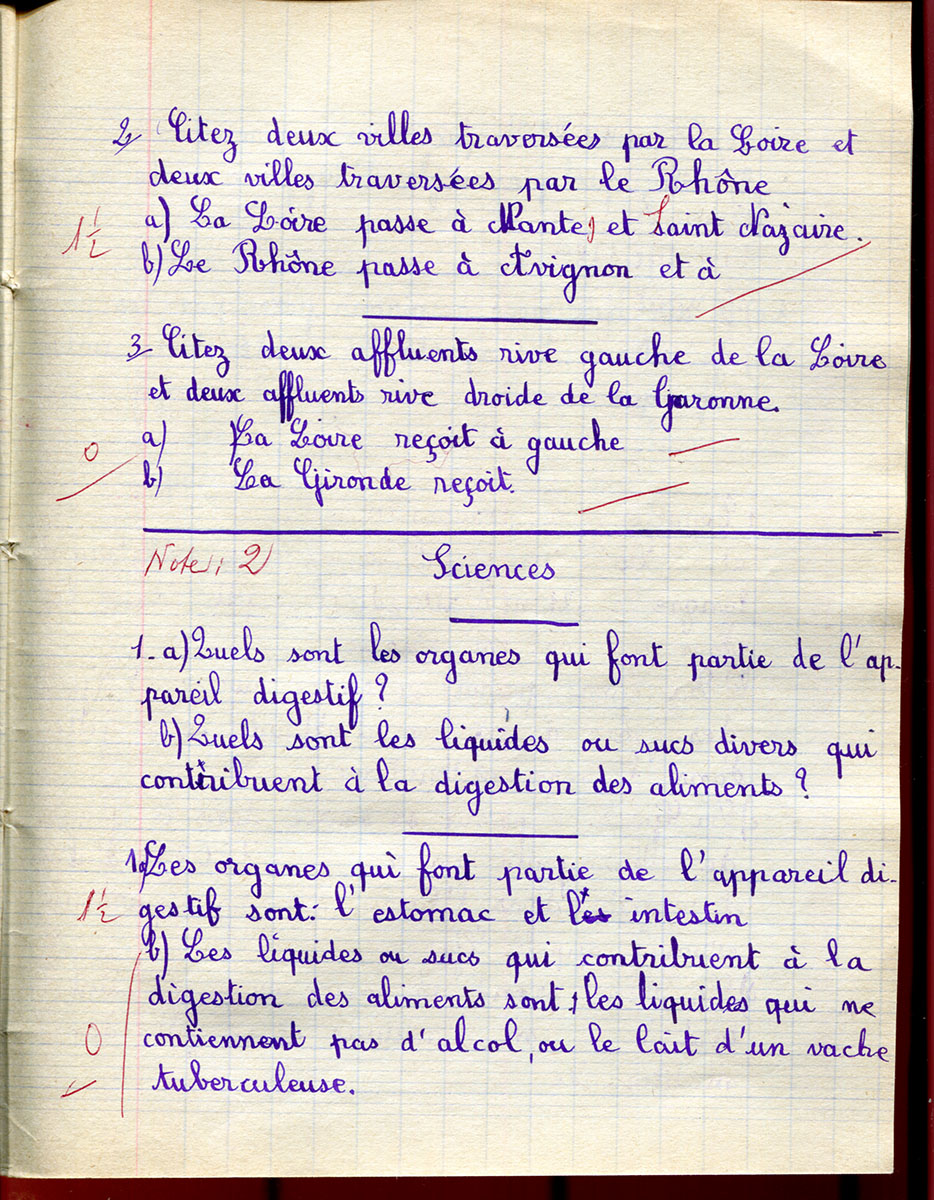 2) Citez deux villes traversées par la Loire et
deux villes traversées par le Rhône
1 1/2 a) La Loire passe à Nantes et Saint Nazaire.
b) Le Rhône passe à Avignon et à
3) Citez deux affluents rive gauche de la Loire
et deux affluents rive droide de la Garonne.
a) La Loire reçoit à gauche
0 b) La Gironde reçoit.
Note : 2 Sciences
1- a) Quels sont les organes qui font partie de l'ap-
pareil digestif ?
b) Quels sont les liquides ou sucs divers qui
contribuent à la digestion des aliments ?
1a) Les organes qui font partie de l'appareil di-
1 1/2 gestif sont: l'estomac et les intestin
b) Les liquides ou sucs qui contribuent à la
digestion des aliments sont, les liquides qui ne
0 contiennent pas d'alcol, ou le lait d'un vache
tuberculeuse.